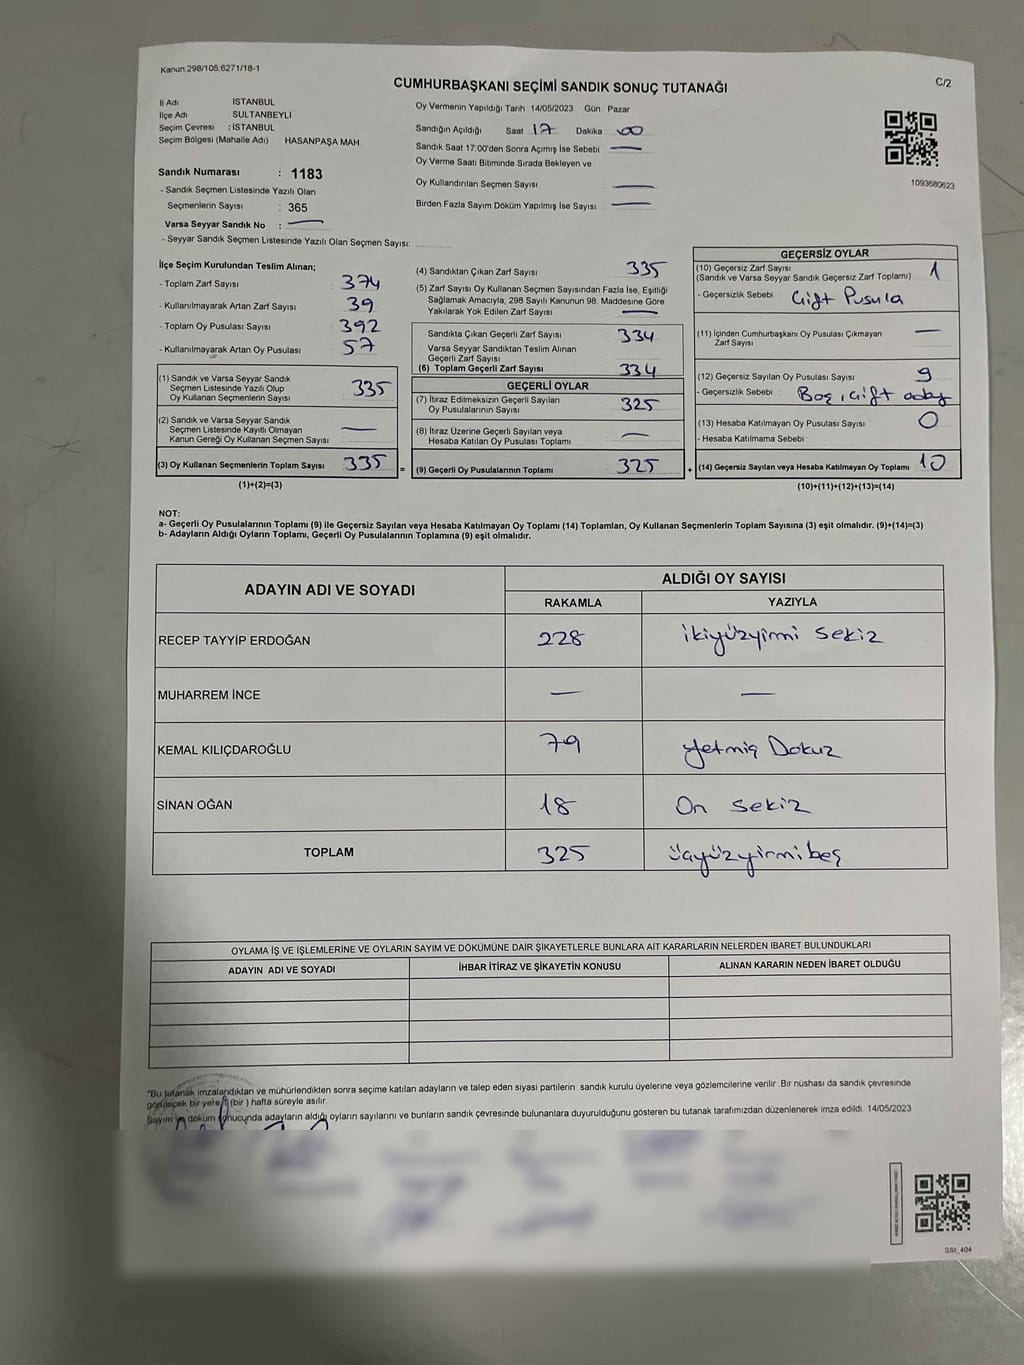 Kanun:298/105,6271/18-1
C/2
CUMHURBAŞKANI SEÇİMİ SANDIK SONUÇ TUTANAĞI
İl Adı İSTANBUL
İlçe Adı : SULTANBEYLİ
Seçim Çevresi : İSTANBUL
Seçim Bölgesi (Mahalle Adı) HASANPAŞA MAH.
Sandık Numarası : 1183
- Sandık Seçmen Listesinde Yazılı Olan
Seçmenlerin Sayısı : 365
Varsa Seyyar Sandık No : —
- Seyyar Sandık Seçmen Listesinde Yazılı Olan Seçmen Sayısı:
Oy Vermenin Yapıldığı Tarih 14/05/2023 Gün Pazar
Sandığın Açıldığı Saat 17 Dakika 00
Sandık Saat 17:00'den Sonra Açımış İse Sebebi —
Oy Verme Saati Bitiminde Sırada Bekleyen ve
Oy Kullandırılan Seçmen Sayısı —
Birden Fazla Sayım Döküm Yapılmış İse Sayısı —
1093680623
İlçe Seçim Kurulundan Teslim Alınan;
- Toplam Zarf Sayısı : 374
- Kullanılmayarak Artan Zarf Sayısı : 39
- Toplam Oy Pusulası Sayısı : 392
- Kullanılmayarak Artan Oy Pusulası : 57
(1) Sandık ve Varsa Seyyar Sandık
Seçmen Listesinde Yazılı Olup
Oy Kullanan Seçmenlerin Sayısı : 335
(2) Sandık ve Varsa Seyyar Sandık
Seçmen Listesinde Kayıtlı Olmayan
Kanun Gereği Oy Kullanan Seçmen Sayısı —
(3) Oy Kullanan Seçmenlerin Toplam Sayısı : 335 =
(1)+(2)=(3)
(4) Sandıktan Çıkan Zarf Sayısı : 335
(5) Zarf Sayısı Oy Kullanan Seçmen Sayısından Fazla İse, Eşitliği
Sağlamak Amacıyla, 298 Sayılı Kanunun 98. Maddesine Göre
Yakılarak Yok Edilen Zarf Sayısı —
Sandıkta Çıkan Geçerli Zarf Sayısı : 334
Varsa Seyyar Sandıktan Teslim Alınan
Geçerli Zarf Sayısı
(6) Toplam Geçerli Zarf Sayısı : 334
GEÇERLİ OYLAR
(7) İtiraz Edilmeksizin Geçerli Sayılan
Oy Pusulalarının Sayısı : 325
(8) İtiraz Üzerine Geçerli Sayılan veya
Hesaba Katılan Oy Pusulası Toplamı : —
(9) Geçerli Oy Pusulalarının Toplamı : 325 +
GEÇERSİZ OYLAR
(10) Geçersiz Zarf Sayısı 1
(Sandık ve Varsa Seyyar Sandık Geçersiz Zarf Toplamı)
- Geçersizlik Sebebi : Çift Pusula
(11) İçinden Cumhurbaşkanı Oy Pusulası Çıkmayan
Zarf Sayısı —
(12) Geçersiz Sayılan Oy Pusulası Sayısı 9
- Geçersizlik Sebebi : Boş, çift aday
(13) Hesaba Katılmayan Oy Pusulası Sayısı 0
- Hesaba Katılmama Sebebi :
(14) Geçersiz Sayılan veya Hesaba Katılmayan Oy Toplamı 10
(10)+(11)+(12)+(13)=(14)
NOT:
a- Geçerli Oy Pusulalarının Toplamı (9) ile Geçersiz Sayılan veya Hesaba Katılmayan Oy Toplamı (14) Toplamları, Oy Kullanan Seçmenlerin Toplam Sayısına (3) eşit olmalıdır. (9)+(14)=(3)
b- Adayların Aldığı Oyların Toplamı, Geçerli Oy Pusulalarının Toplamına (9) eşit olmalıdır.
ADAYIN ADI VE SOYADI ALDIĞI OY SAYISI
RAKAMLA YAZIYLA
RECEP TAYYİP ERDOĞAN 228 ikiyüzyirmi sekiz
MUHARREM İNCE — —
KEMAL KILIÇDAROĞLU 79 yetmiş Dokuz
SİNAN OĞAN 18 On sekiz
TOPLAM 325 üçyüzyirmi beş
OYLAMA İŞ VE İŞLEMLERİNE VE OYLARIN SAYIM VE DÖKÜMÜNE DAİR ŞİKAYETLERLE BUNLARA AİT KARARLARIN NELERDEN İBARET BULUNDUKLARI
ADAYIN ADI VE SOYADI İHBAR İTİRAZ VE ŞİKAYETİN KONUSU ALINAN KARARIN NEDEN İBARET OLDUĞU
"Bu tutanak imzalandıktan ve mühürlendikten sonra seçime katılan adayların ve talep eden siyasi partilerin sandık kurulu üyelerine veya gözlemcilerine verilir. Bir nüshası da sandık çevresinde
görülecek bir yere 1 (bir ) hafta süreyle asılır.
Sayım ve döküm sonucunda adayların aldığı oyların sayılarını ve bunların sandık çevresinde bulunanlara duyurulduğunu gösteren bu tutanak tarafımızdan düzenlenerek imza edildi. 14/05/2023
SSI_404